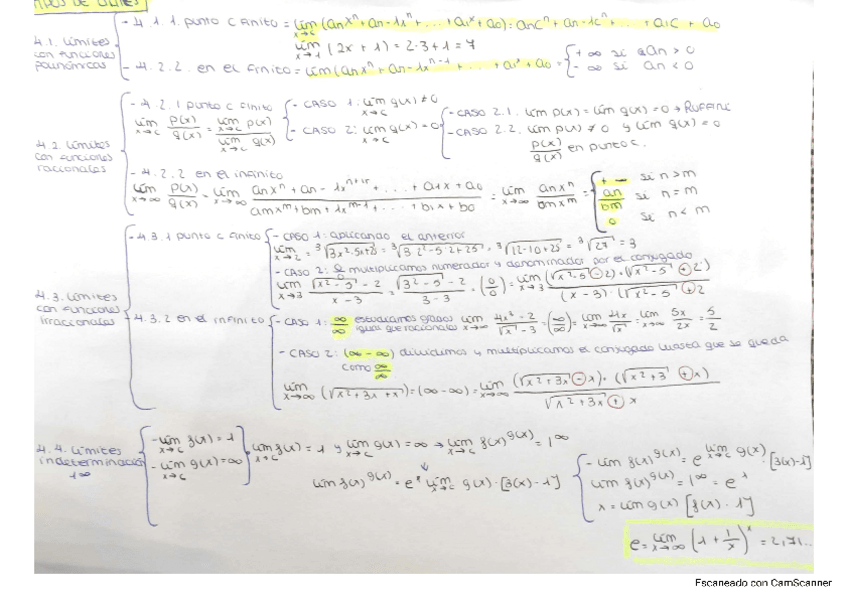 TIPOS DE LÍMITES
4.1. Límites con funciones polinómicas
- 4.1.1. punto c finito = lim x→c (anxⁿ + an-1xⁿ + ... + a1xⁿ + a0) = ancⁿ + an-1cⁿ + ... + a1c + a0
lim x→1 (2x + 1) = 2·3 + 1 = 7
- 4.2.2. en el finito = lim (anxⁿ + an-1xⁿ⁻¹ + ... + a1 + a0 =
+∞ si an > 0
-∞ si an < 0
4.2. Límites con funciones racionales
- 4.2.1 punto c finito
lim x→c p(x)/g(x) = lim x→c p(x) / lim x→c g(x)
- CASO 1: lim x→c g(x) ≠ 0
- CASO 2: lim x→c g(x) = 0
- CASO 2.1. lim p(x) = lim g(x) = 0 → RUFFINI
- CASO 2.2. lim p(x) ≠ 0 y lim g(x) = 0
p(x)/g(x) en punto c.
- 4.2.2 en el infinito
lim x→∞ p(x)/g(x) = lim x→∞ anxⁿ + an-1xⁿ⁺ + ... + a1x + a0 / amxᵐ + bm + 1xᵐ⁻¹ + ... + b1x + b0 = lim x→∞ anxⁿ/bmxᵐ =
+- si n > m
an/bm si n = m
0 si n < m
4.3. Límites con funciones irracionales
- 4.3.1 punto c finito
- CASO 1: aplicando el anterior
lim x→2 = ³√(3x²·5x+25) = ³√(3·2²-5·2+25), ³√(12-10+25) = ³√27 = 3
- CASO 2: Se multiplicamos numerador y denominador por el conjugado
lim x→3 √(x²-5) - 2 / x-3 = √(3²-5) - 2 / 3-3 = (0/0) = lim x→3 (√(x²-5) - 2)·(√(x²-5) + 2) / (x-3)·(√(x²-5) + 2
- 4.3.2 en el infinito
- CASO 1: ∞/∞ estudiamos grados igual que racionales lim x→∞ 4x²-2 / √x²-3 = (∞/∞) = lim x→∞ 4x/√x = lim x→∞ 5x/2x = 5/2
- CASO 2: (∞-∞) dividimos y multiplicamos el conjugado hasta que se queda como ∞/∞
lim x→∞ (√(x²+3x) + x) = (∞-∞) = lim x→∞ (√(x²+3x) - x)·(√(x²+3) + x) / √(x²+3x) + x
4.4. Límites indeterminación 1∞
- lim x→c f(x) = 1
- lim x→c g(x) = ∞
lim x→c f(x) = 1 y lim x→c g(x) = ∞ → lim x→c f(x)^g(x) = 1^∞
↓
lim f(x)^g(x) = e^λ lim x→c g(x)·[f(x)-1]
- lim f(x)^g(x) = e^lim x→c g(x)·[f(x)-1]
lim f(x)^g(x) = 1^∞ = e^λ
x = lim g(x) [f(x)·1]
e = lim x→∞ (1 + 1/x)^x = 2,71...
Escaneado con CamScanner